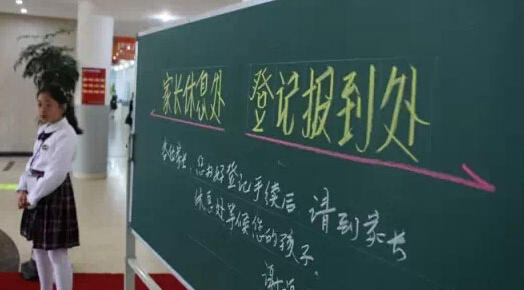 家长休息处
登记报到处
各位家长，您办好登记手续后 请到家长
休息处等候您的孩子.
谢谢